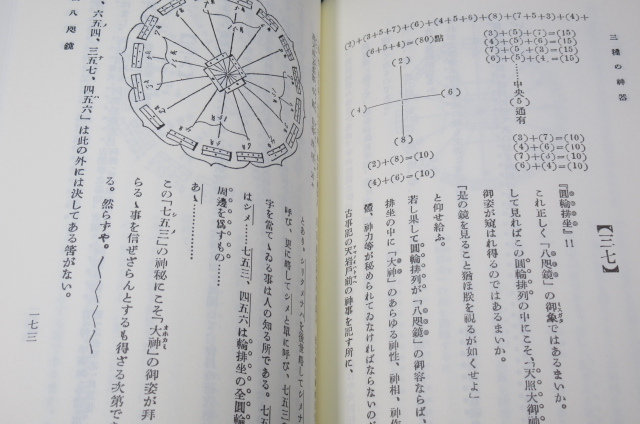 三種の神器
(3)+(5)+(7)=(15)
(4)+(5)+(6)=(15)
(7)+(5)+(3)=(15)
(6)+(5)+(4)=(15)
中央(5)通有
(3)+(7)=(10)
(4)+(6)=(10)
(7)+(3)=(10)
(6)+(4)=(10)
(2)+(3+5+7)+(6)+(4+5+6)+(8)+(7+5+3)+(4)+
(6+5+4)=(80)點
(2)
(4)
(6)
(8)
(2)+(8)=(10)
(4)+(6)=(10)
【三七】
『圓輪排坐』!!
これ正しく『八咫鏡』の御象ではあるまいか。
して見ればこの圓輪排列の中にこそ、天照大御神
御姿が窺はれ得るのではあるまいか。
「是の鏡を見ること猶ほ朕を視るが如くせよ」
と仰せ給ふ。
若し果して圓輪排列が『八咫鏡』の御容ならば、
排坐の中に『大神』のあらゆる神性、神相、神作
神力等が秘められてゐなければならないの
古事記の天岩戸前の神事を記す所に、
呼び、更に略してシメと單に呼び、七五三の
字を當てゝゐる事は人の知る所である。七五
はシメ……七五三、四五六は輪排坐の全圓輪
周邊を爲すもの……
あゝ…………
この『七五三』の神秘にこそ『大神』の御姿が拜
らるゝ事を信ぜざらんとするも得ざる次第で
る。然らずや。
六五四、三五七、四五六』は此の外には決してある筈がない。
八咫鏡
一七三